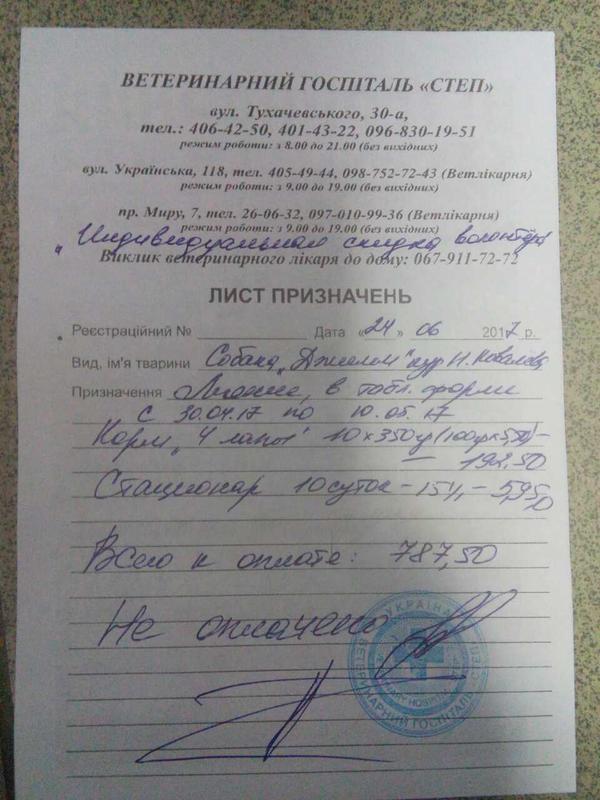 ВЕТЕРИНАРНИЙ ГОСПІТАЛЬ «СТЕП»
вул. Тухачевського, 30-а,
тел.: 406-42-50, 401-43-22, 096-830-19-51
режим роботи: з 8.00 до 21.00 (без вихідних)
вул. Українська, 118, тел. 405-49-44, 098-752-72-43 (Ветлікарня)
режим роботи: з 9.00 до 19.00 (без вихідних)
пр. Миру, 7, тел. 26-06-32, 097-010-99-36 (Ветлікарня)
режим роботи: з 9.00 до 19.00 (без вихідних)
Индивидуальная скидка волонтёра
Виклик ветеринарного лікаря до дому: 067-911-72-72
ЛИСТ ПРИЗНАЧЕНЬ
Реєстраційний № Дата «24» 06 2017 р.
Вид, ім'я тварини Собака „Джелли" кур Н.
Призначення в табл. форме
с 30.04.17 по 10.05.17
Корм „4 лапы" 10×350г (100гр×5,50)-
— 192,50
Стационар 10 суток - 15% - 595,0
Всего к оплате: 787,50
Не оплачено
УКРАЇНА
ВЕТЕРИНАРНИЙ ГОСПІТАЛЬ